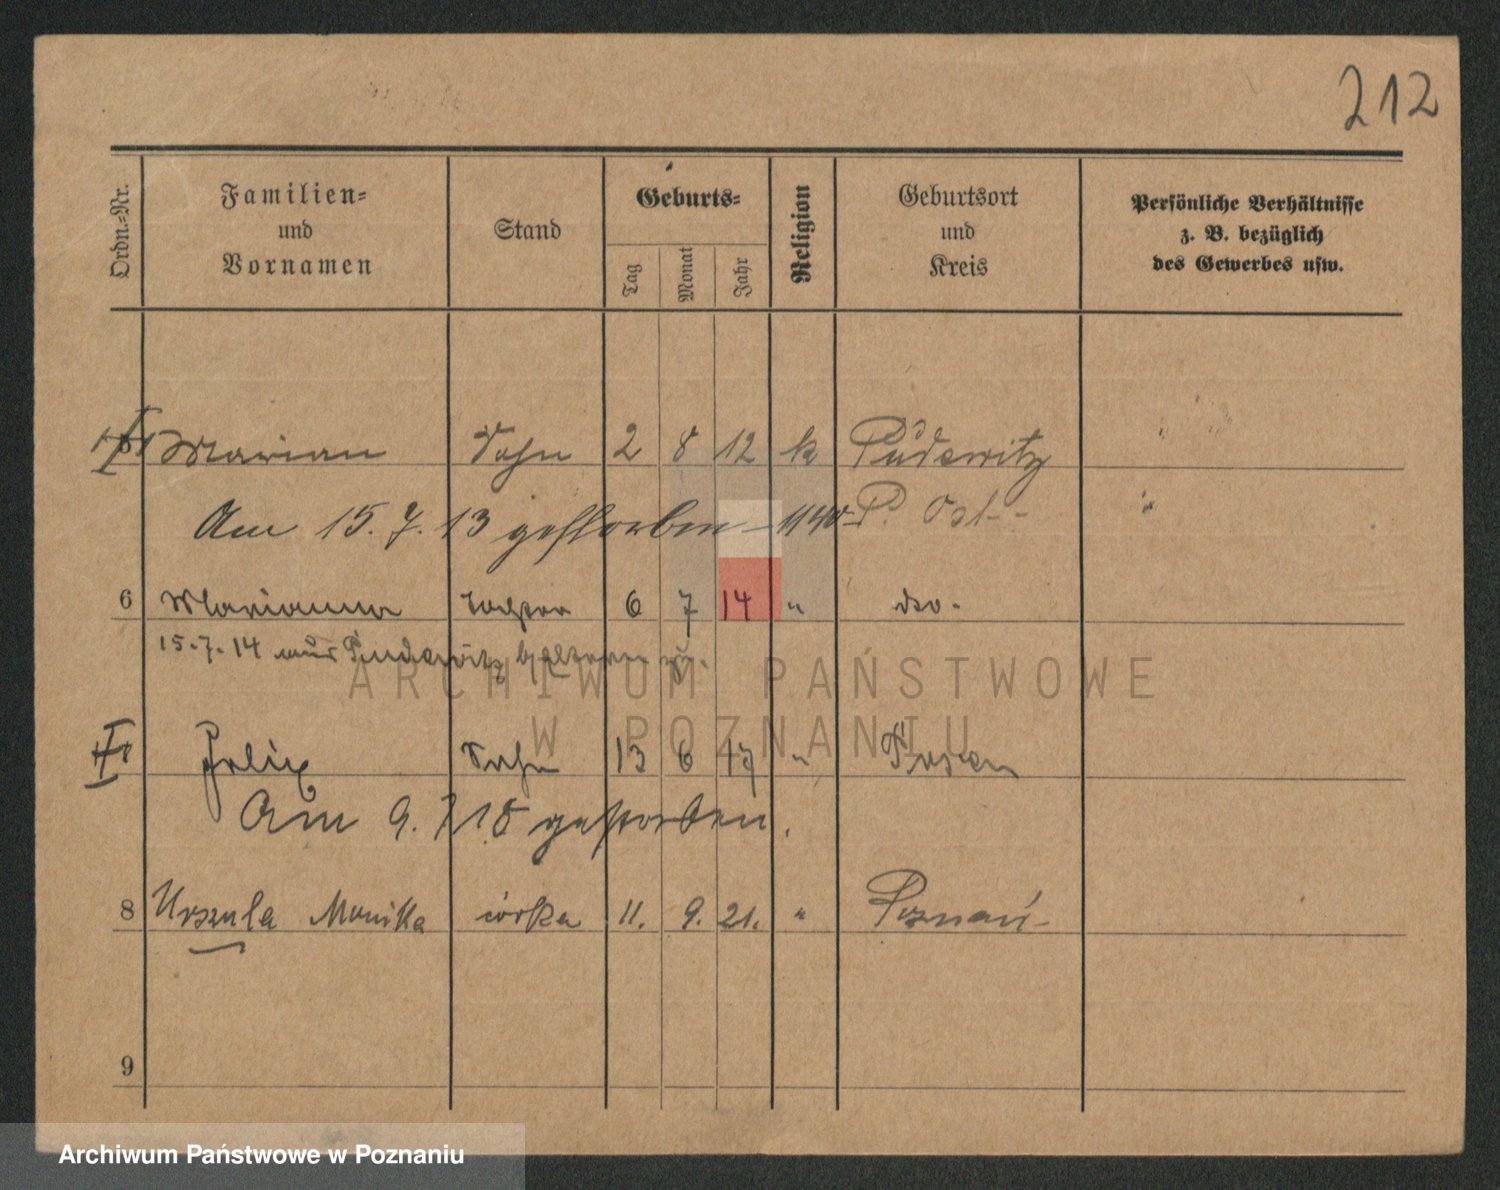 212
Ordn.=Nr.
Familien=
und
Vornamen
Stand
Geburts=
Tag
Monat
Jahr
Religion
Geburtsort
und
Kreis
Persönliche Verhältnisse
z. B. bezüglich
des Gewerbes usw.
Marian Sohn 2 8 12 k Pudewitz
Am 15.7.13 gestorben - 1140 P. Ost
6 Marianna Tochter 6 7 14 " do.
15.7.14 aus Pudewitz
Felix Sohn 13 6 17 " Posen
Am 9.7 18 gestorben.
8 Urszula Monika córka 11. 9. 21. " Poznań
9
ARCHIWUM PAŃSTWOWE
W POZNANIU
Archiwum Państwowe w Poznaniu